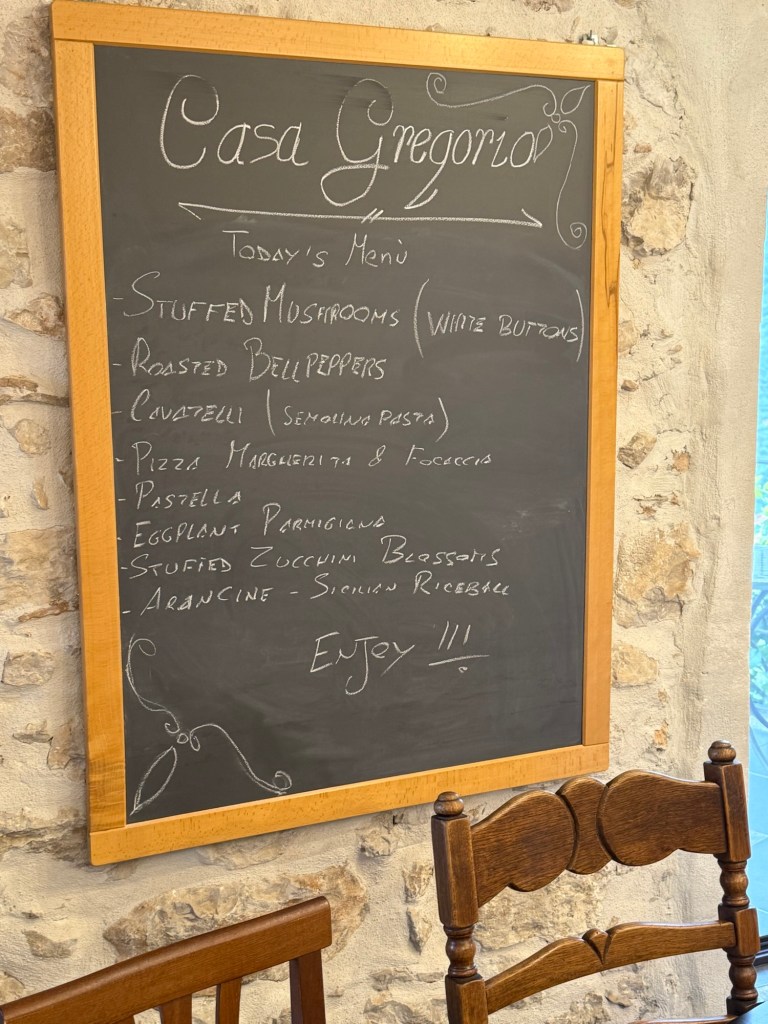 Casa Gregorio
Today's Menù
- Stuffed Mushrooms (White Buttons)
- Roasted Bell Peppers
- Cavatelli (Semolina Pasta)
- Pizza Margherita & Focaccia
- Pastella
- Eggplant Parmigiana
- Stuffed Zucchini Blossoms
- Arancine - Sicilian Riceball
Enjoy !!!